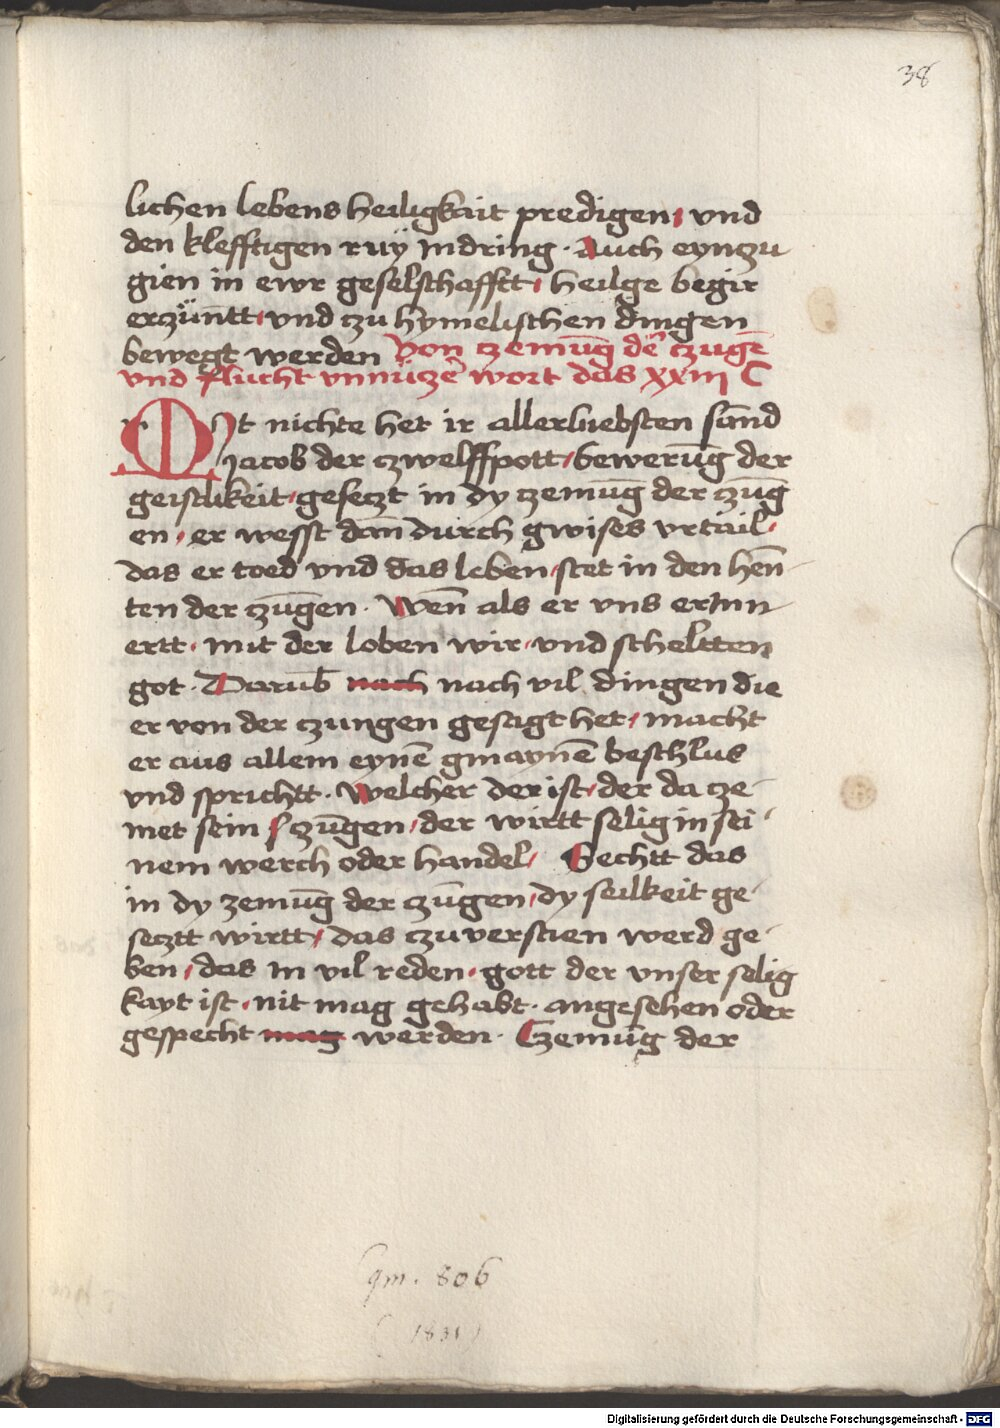 38
lichen lebens heiligkait predigen, vnd
den klefftigen ruӱ Indring . Auch eynzu
gien in ewr geselschafftt, heilge begir
erzünt̄t, vnd czu hymelischen dingen
bewegt werden Von czemūg de᷑ czugē
vnd flucht vnnüze᷑ wort das xxiij C
MIt nichte het ir allerluebsten sānd
Jacob der czwelffpott, bewerūg der
geistlikeit, gesetzt in dy czemūg der czūg
en, er wesst dan̄ durch gwises vrtail,
das er toed vnd das leben, stet in den hen̄
ten der czūgen . Wen̄ als er vns erInn
ertt, mit der loben wir, vnd scheltten
got . Darūb nach nach vil dingen die
er von der czungen gesagt het, macht
er aus allem eynē gmaynē beschlus
vnd sprichtt . Welcher der ist, der da cze
met sein czūgen, der wirtt selig in sei
nem werch oder handel, Sechtt das
in dy zemūg der czūgen, dy seilkeit ge
seczt wirtt, das czu verstien werd ge
ben, das in vil reden, gott der vnser selig
kayt ist, nit mag gehabt . angesehen oder
gespecht mag werden . Czemūg der
Cgm. 806
(1831)
Digitalisierung gefördert durch die Deutsche Forschungsgemeinschaft - DFG